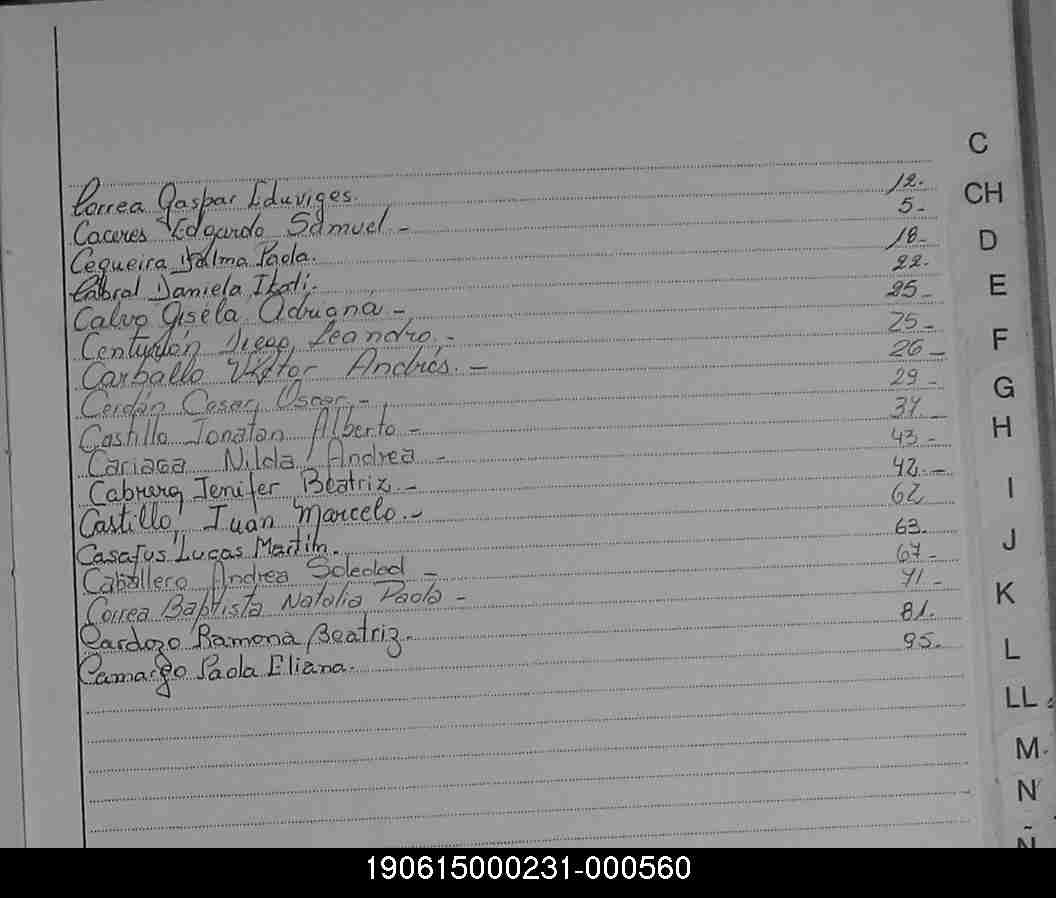 C
Correa Gaspar Eduviges. 12.
CH
Caceres Edgardo Samuel - 5-
Cequeira Dalma Paola. 18-
D
Cabral Daniela Itati. 22.
E
Calvo Gisela Adriana - 25-
Centurión Diego Leandro. - 25-
F
Carballo Víctor Andrés. - 26-
Cerdán Cesar Oscar - 29-
G
Castillo Jonatan Alberto -
H
Cariaga Nilda Andrea - 43-
Cabrera Jenifer Beatriz - 42.-
I
Castillo, Juan Marcelo.- 62
Casafus Lucas Martín. 63.
J
Caballero Andrea Soledad - 67-
Correa Baptista Natalia Paola - 71-
K
Cardozo Ramona Beatriz. 81.
L
Camargo Paola Eliana. 95.
LL
M
N
Ñ
190615000231-000560